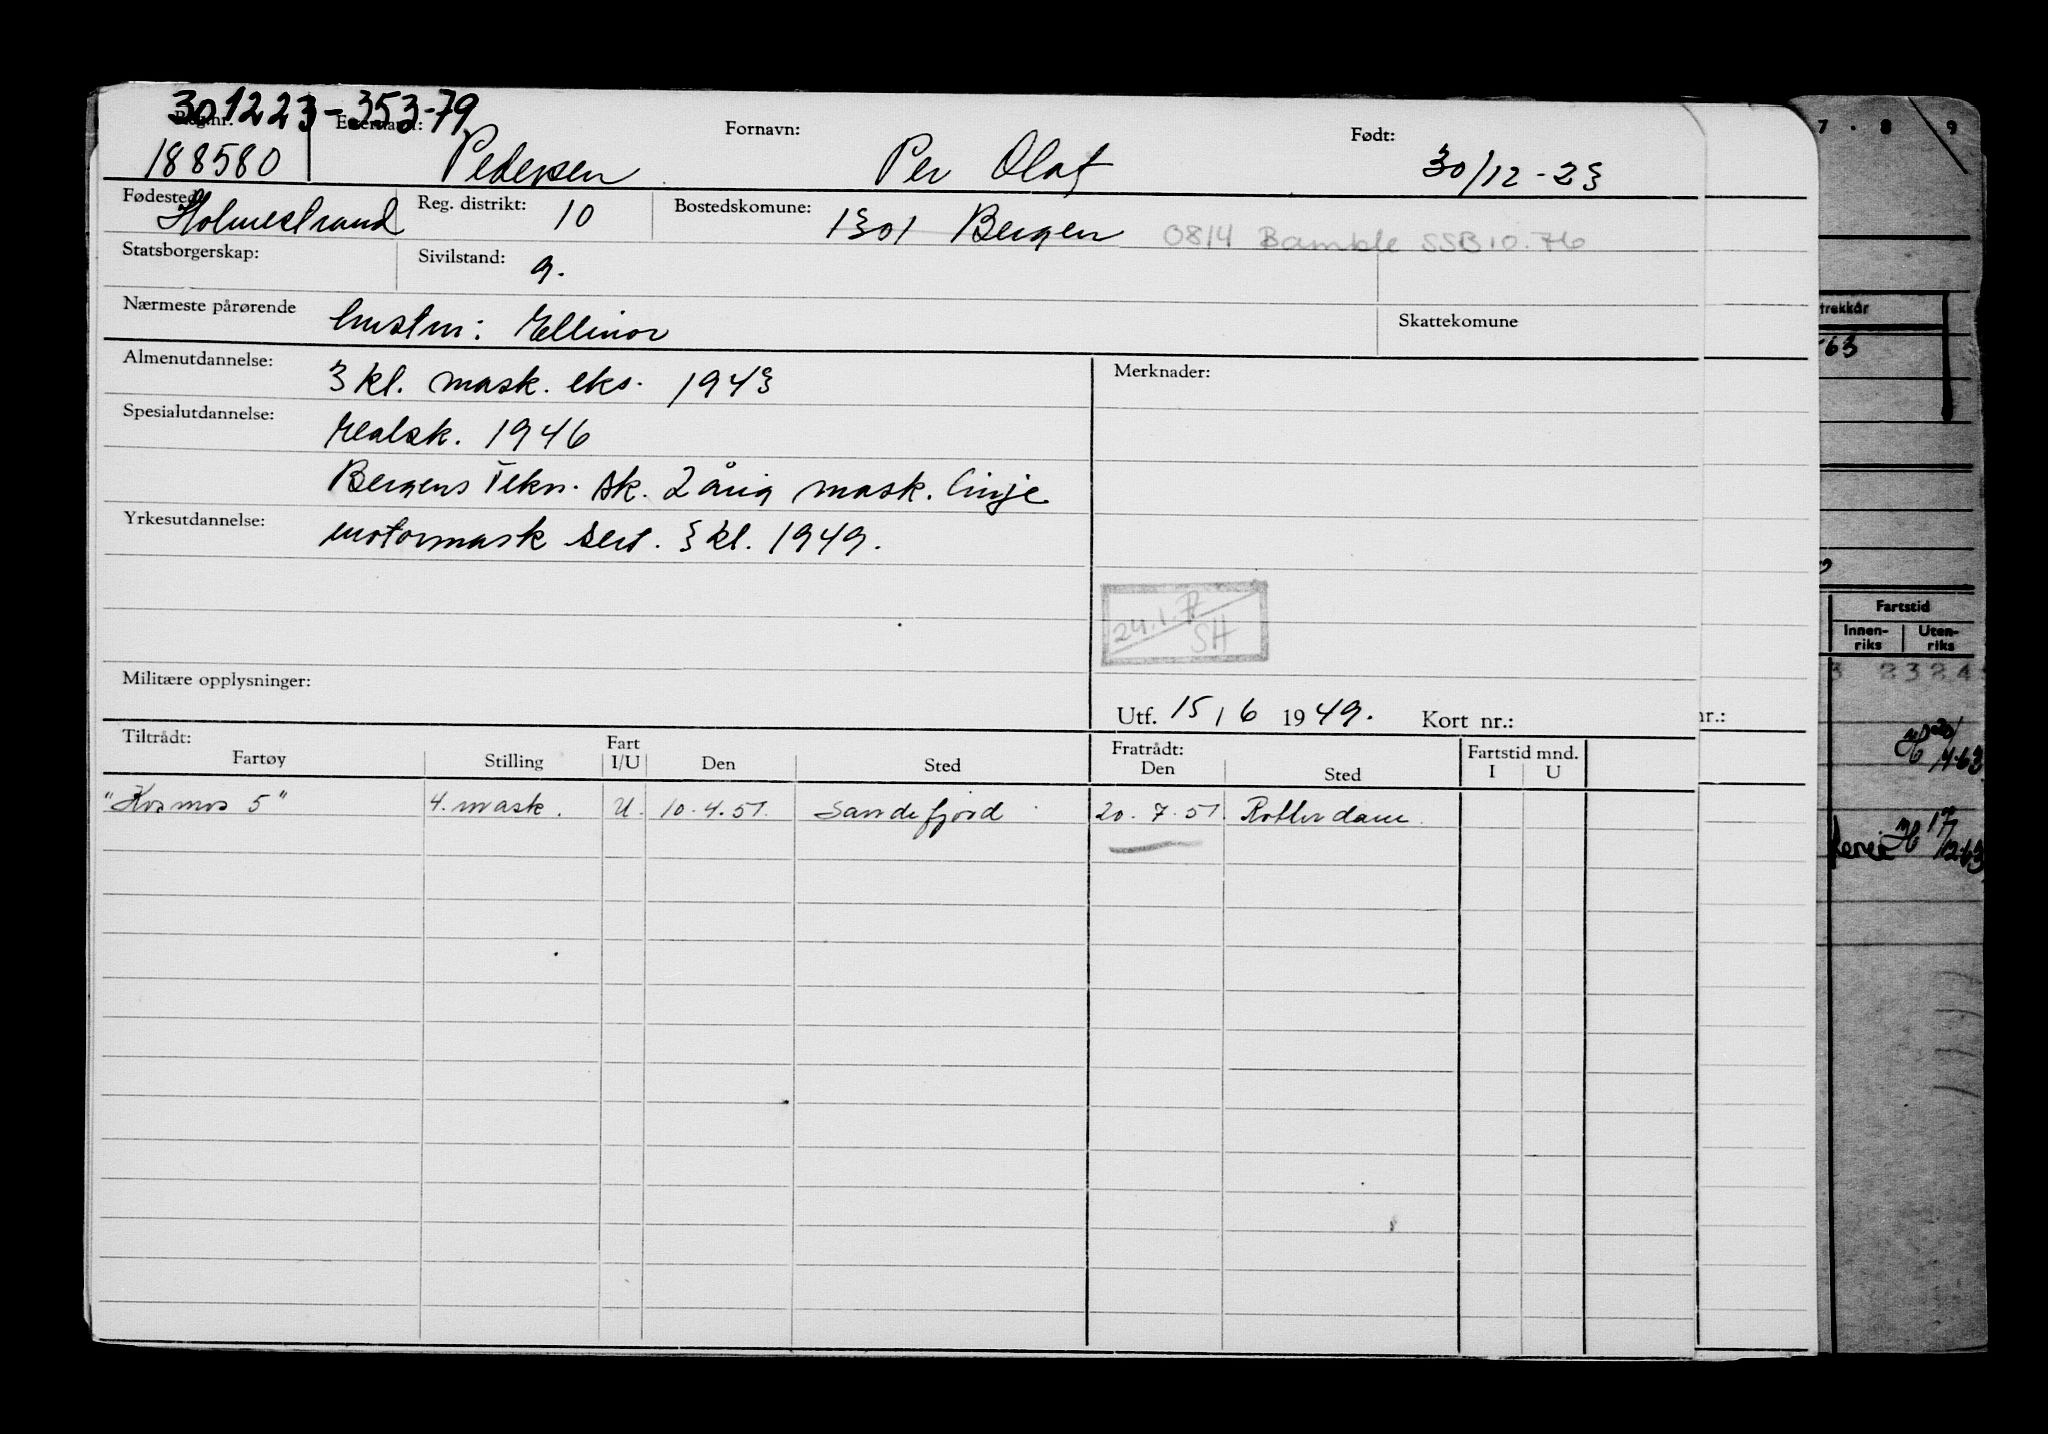 301223-353-79
Reg.nr. Etternavn: Fornavn: Født:
188580 Pedersen Per Olaf 30/12-23
Fødested: Holmestrand Reg. distrikt: 10 Bostedskomune: 1301 Bergen 0814 Bamble SSB 10.76
Statsborgerskap: Sivilstand: g.
Nærmeste pårørende hustru: Ellinor Skattekomune
Almenutdannelse: 3 kl. mask. eks. 1943 Merknader:
Spesialutdannelse: Realsk. 1946
Bergens Tekn. sk. 2 årig mask. linje
Yrkesutdannelse: motormask sert. 3 kl. 1949.
24.1.77
SH
Militære opplysninger:
Utf. 15/6 1949. Kort nr.:
Tiltrådt: Fart Fratrådt: Fartstid mnd.
Fartøy Stilling I/U Den Sted Den Sted I U
"Kosmos 5" 4. mask. U. 10.4.51. Sandefjord 20.7.51. Rotterdam
nr.:
7 . 8 9
trekkår
63
Fartstid
Innen-
riks
Uten-
riks
3 2324